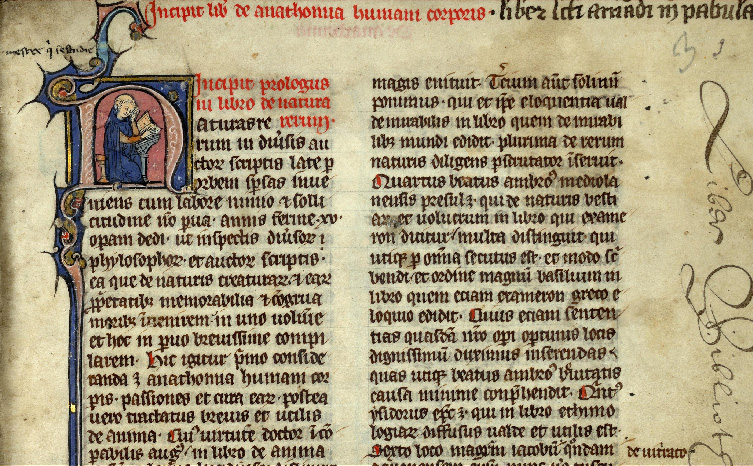 Incipit lib' de anathomia humani corporis·
Incipit prologus
in libro de natura
rerum·
Naturas re
rum in diu͛sis au
ctor scriptis late p
orbem sp̃sas inue
niens cum labore nimio ⁊ solli
citudine nõ pua· annis ferme·xv·
oꝑam dedi· ut inspectis diu͛sor̃
phylosophor̃· et auctor̃ scriptis·
ea que de naturis creaturar̃· ⁊ ear̃
ꝓprietatib; memorabilia ⁊ cõgrua
morib; in uno uolũie
et hoc in puo breuissime compi
larem· Hic igitur p̃mo conside
randa ꝫ anathomia humani cor
pis· passiones et cura ear̃· postea
uero tractatus breuis et utilis
de anima· Cui͛ uirtute doctor ĩcõ
pabilis aug͛ in libro de anima
magis enituit· Terciũ aũt solinũ
ponimus· qui et ip̃e eloquentia
de mirabilib in libro quem de mirabi
lib; mundi edidit· plurima de rerum
naturis diligens pscrutator ĩseruit·
Quartus beatus ambro͛ mediola
nensis presul ꝫ· qui de naturis besti
ar̃· et uolucrum in libro qui exame
ron dicitur multa distinguit· qui
utiq; p om̃ia secutus est· et modo sc̃
bendi et ordine magnũ basilium in
libro quem eciam exameron greco e
loquio edidit· Cuius eciam senten
tias quasdã nr̃o opi optimis locis
dignissimũ duximus inserendas
quas utiq; beatus ambro͛ b̃uitatis
causa minime comp̃hendit· Qũit͛
ysidorus ep̃c ꝫ· qui in libro ethimo
logiar̃ diffusus ualde et utilis est·
Sexto loco magr̃m iacobũ quondam
de uitriaco
Liber Biblioth